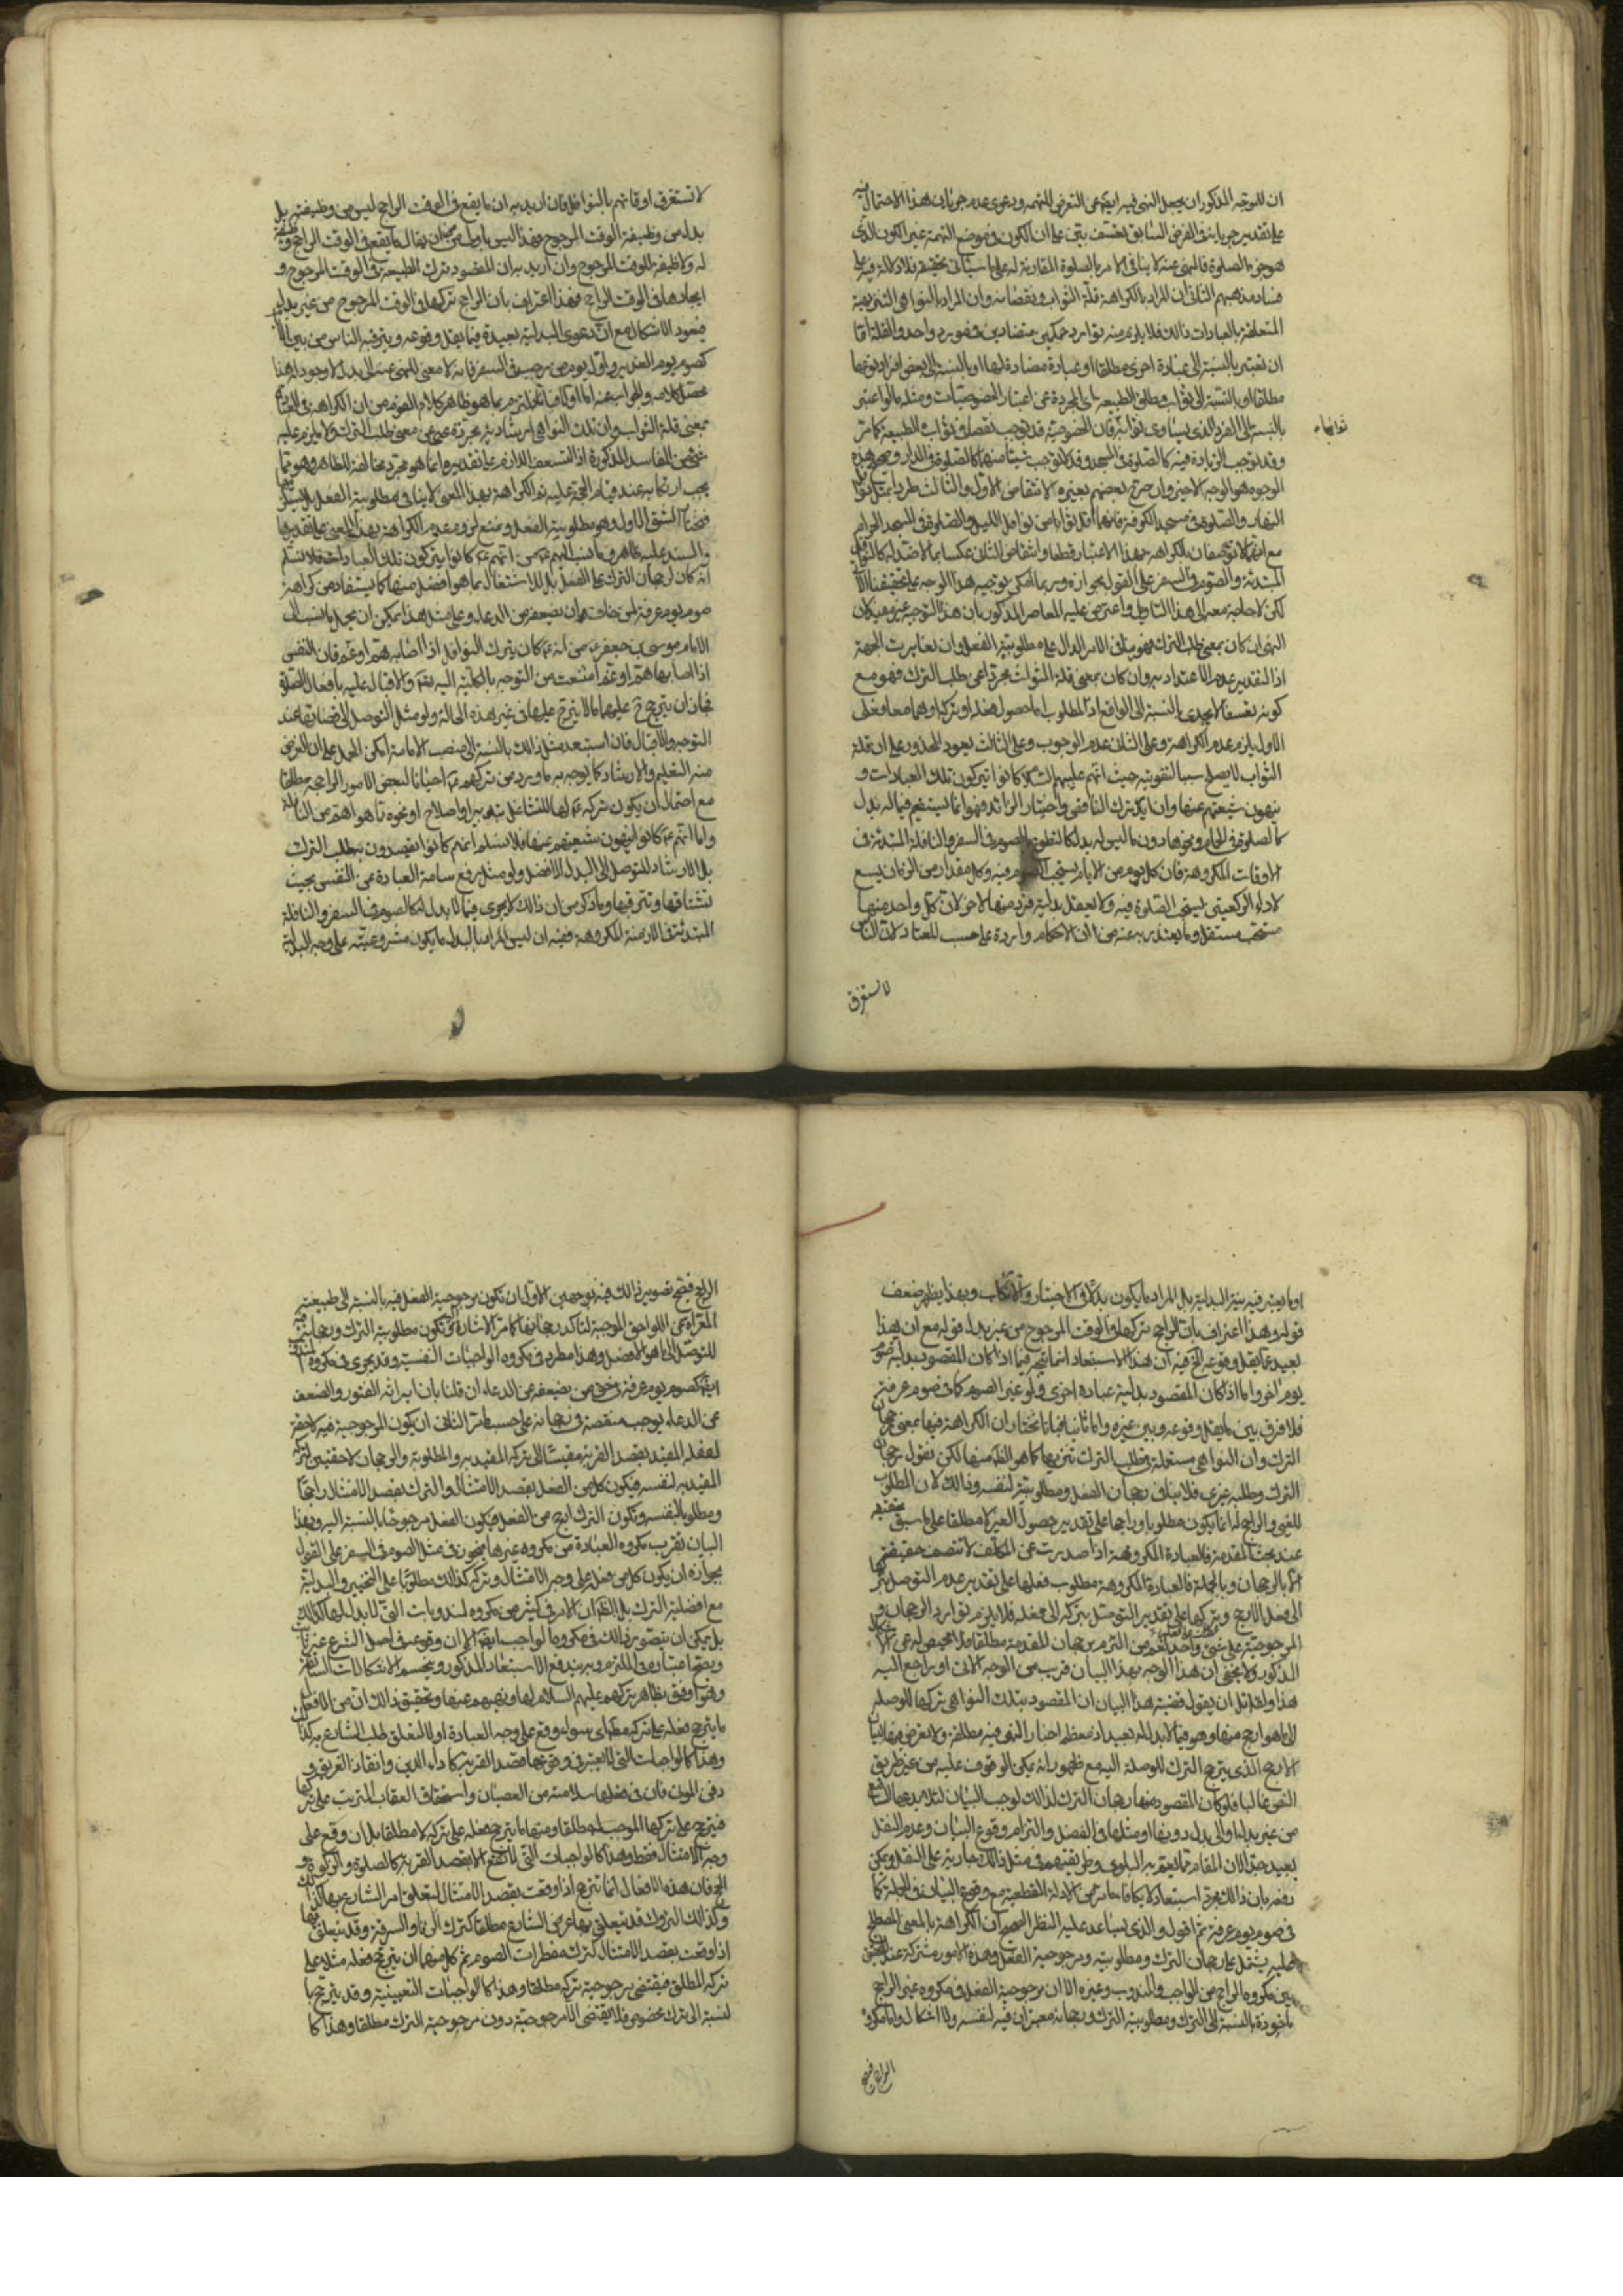 ان للموجه المذكور ان يجعل النهى فيه ايضا عن التعرض للتهمة ودعوى عدم جريان هذا الاحتمال فيه
على تقدير جريانه فى الفرض السابق تعسف يبتنى على ان الكون فى موضع التهمة غير الكون الذى
هو جزء الصلوة فالنهى عنه لا ينافى الامر بالصلوة المقارنة له على ما سياتى تحقيقه فلا دلالة فيه على
فساد مذهبهم الثانى ان المراد بالكراهة قلة الثواب ونقصانه وان المراد بالنواهى التنزيهية
المتعلقة بالعبادات ذلك فلا يلزم منه توارد حكمين متضادين فى مورد واحد والقلة اما
ان تعتبر بالنسبة الى عبادة اخرى مطلقا او عبادة مضادة لها او بالنسبة الى بعض افراد نوعها
مطلقا او بالنسبة الى ثواب مطلق الطبيعة اى المجردة عن اعتبار الخصوصيات ومثله ما لو اعتبر
بالنسبة الى الفرد الذى يساوى ثوابه
ثوابها فان الخصوصية قد توجب نقصا فى ثواب الطبيعة كما مر
وقد توجب الزيادة فيه كالصلوة فى المسجد وقد لا توجب شيئا منهما كالصلوة فى الدار وصحح هذه
الوجوه هو الوجه الاخير وان صرح بعضهم بغيره لانتقاض الاول والثالث طردا بمثل نوافل
النهار والصلوة فى مسجد الكوفة فانهما اقل ثوابا من نوافل الليل والصلوة فى المسجد الحرام
مع انهما لا توصفان بالكراهة بهذا الاعتبار قطعا وانتقاض الثانى عكسا بما لا ضد له كالنوافل
المبتدئة والصوم فى السفر على القول بجوازه وربما امكن توجيه هذا الوجه على تحقيقنا الآتى
لكن لا حاجة معه الى هذا التاويل واعترض عليه المعاصر المذكور بان هذا التوجيه غير مفيد لان
النهى ان كان بمعنى طلب الترك فهو ينافى الامر الدال على مطلوبية الفعل وان تغايرت الجهة
اذ التقدير عدم الاعتداد به وان كان بمعنى قلة الثواب مجردا عن طلب الترك فهو مع
كونه تعسفا لا يجدى بالنسبة الى الواقع اذ المطلوب اما حصول هذا او تركه او هما معا فعلى
الاول يلزم عدم الكراهة وعلى الثانى عدم الوجوب وعلى الثالث يعود المحذور على ان قلة
الثواب لا يصلح سببا لتفويته حيث انهم عليهم السلام كانوا يتركون تلك العبادات و
ينهون شيعتهم عنها وان اريد ترك الناقص واختيار الزائد فهو انما يستقيم فيما له بدل
كالصلوة فى الحمام ونحوها دون ما ليس له بدل كالتطوع بالصوم فى السفر والنافلة المبتدئة فى
الاوقات المكروهة فان كل يوم من الايام يستحب الصوم فيه وكل مقدار من الزمان يسع
لاداء الركعتين يستحب الصلوة فيه ولا يعقل بدلية فرد منها لاخر لان كل واحد منهما
مستحب مستقل وما يعتذر به عنه من ان الاحكام واردة على حسب المعتاد لان الناس
لا تستغرق
لا تستغرق اوقاتهم بالنوافل فان اريد به ان ما يقع فى الوقت الراجح ليس من وظيفته بل
بدل من وظيفة الوقت المرجوح فهذا ليس باولى من ان يقال ما يقع فى الوقت الراجح وظيفة
له ولا وظيفة للوقت المرجوح وان اريد به ان المقصود ترك الطبيعة فى الوقت المرجوح و
ايجادها فى الوقت الراجح فهذا اعتراف بان الراجح تركها فى الوقت المرجوح من غير بدل
فيعود الاشكال مع ان دعوى البدلية بعيدة فيما يقل وقوعه ويترقبه الناس من بين الايام
كصوم يوم الغدير واول يوم من رجب فى السفر فانه لا معنى للنهى عنه الى بدل لا وجود له هذا
محصل كلامه والجواب عنه اما اولا فبانا نلتزم بما هو ظاهر كلام القوم من ان الكراهة فى العبادة
بمعنى قلة الثواب وان تلك النواهى ارشادية مجردة عن معنى طلب الترك ولا يلزم عليه
شىء من المفاسد المذكورة اذ التعسف اللازم على تقديره انما هو مجرد مخالفة للظاهر وهو مما
يجب ارتكابه عند قيام الحجة عليه ثم الكراهة بهذا المعنى لا ينافى مطلوبية الفعل بل يستلزمها
فنختار الشق الاول وهو مطلوبية الفعل ونمنع لزوم عدم الكراهة بهذا المعنى على تقديرها
والسند عليه ظاهر وما نسب اليهم عم من انهم عم كانوا يتركون تلك العبادات فلا نسلم
انه كان لرجحان الترك على الفعل بل للاشتغال بما هو افضل منها كما يستفاد من كراهة
صوم يوم عرفة لمن خاف ان يضعفه عن الدعاء وعلى مثل هذا يمكن ان يحمل ما نسب الى
الامام موسى بن جعفر عم من انه عم كان يترك النوافل اذا اصابه هم او غم فان النفس
اذا اصابها هم او غم امتنعت من التوجه بالكلية اليه تعالى والاقبال عليه بافعال الصلوة
فجاز ان يترجح عليها ما لا يترجح عليها فى غير هذه الحالة ولو مثل التوصل الى قضائها عند
التوجه والاقبال فان استبعد مثل ذلك بالنسبة الى منصب الامامة امكن الحمل على ان الغرض
منه التعليم والارشاد كما يوجه به ما ورد من تركهم عم احيانا لبعض الامور الراجحة مطلقا
مع احتمال ان يكون تركه عم لها للتشاغل بتدبير او اصلاح او نحوه مما هو اهم من النافلة
واما انهم عم كانوا ينهون شيعتهم عنها فلا نسلم انهم كانوا يقصدون به طلب الترك
بل الارشاد للتوصل الى البدل الافضل ولو مثل رفع سامة العبادة عن النفس بحيث
تشتاقها وتترقبها وما ذكر من ان ذلك لا يجرى فيما لا بدل له كالصوم فى السفر والنافلة
المبتدئة فى الازمنة المكروهة ففيه ان ليس المراد بالبدل ما يكون مشروعيته على وجه البدلية
او ما يعتبر فيه نية البدلية بل المراد ما يكون بدلا فى الاختيار والارتكاب وبهذا يظهر ضعف
قوله وهذا اعتراف بان الراجح تركها فى الوقت المرجوح من غير بدل قوله مع ان هذا
بعيد مما يقل وقوعه الخ فيه ان هذا الاستبعاد انما يتجه فيما اذا كان المقصود بدلية صوم
يوم آخر واما اذا كان المقصود بدلية عبادة اخرى ولو غير الصوم كما فى صوم عرفة
فلا فرق بين ما يقل وقوعه وبين غيره واما ثانيا فبانا نختار ان الكراهة فيها بمعنى رجحان
الترك وان النواهى مستعملة فى طلب الترك تنزيها كما هو الظاهر منها لكن نقول رجحان
الترك وطلبه غيرى فلا ينافى رجحان الفعل ومطلوبيته لنفسه وذلك لان المطلوب
للغير والراجح له انما يكون مطلوبا وراجحا على تقدير حصول الغير لا مطلقا على ما سبق تحقيقه
عند بحث المقدمة فالعبادة المكروهة اذا صدرت عن المكلف لا تتصف حقيقة
الا بالرجحان وبالجملة فالعبادة المكروهة مطلوب فعلها على تقدير عدم التوصل بتركها
الى فعل الارجح وتركها على تقدير التوصل بتركه الى فعله فلا يلزم توارد الرجحان و
المرجوحية على شىء واحد نعم من التزم برجحان المقدمة مطلقا فلا محيص له عن الاشكال
المذكور ولا يخفى ان هذا الوجه بهذا البيان قريب من الوجه الاتى او راجع اليه
هذا ولقائل ان يقول قضية هذا البيان ان المقصود بتلك النواهى تركها للوصلة
الى ما هو ارجح منها وهو فيما لا بدل له بعيد اذ معظم اخبار النهى فيه مطلقة ولا تعرض فيها لبيان
الارجح الذى يترجح الترك للوصلة اليه مع ظهور انه لا يمكن الوقوف عليه من غير طريق
النص غالبا فلو كان المقصود منها رجحان الترك لذلك لوجب البيان لئلا يدعها التابع
من غير بدل او الى بدل دونها او مثلها فى الفضل والتزام وقوع البيان وعدم النقل
بعيد جدا لان المقام مما يعم به البلوى وطريقتهم فى مثل ذلك جارية على النقل ويمكن
دفعه بان ذلك مجرد استبعاد لا يكافئ ما مر من الادلة القطعية مع وقوع البيان فى الجملة كما
فى صوم يوم عرفة ثم اقول والذى يساعد عليه النظر الصحيح ان الكراهة بالمعنى المصطلح
عليه يشتمل على رجحان الترك ومطلوبيته ومرجوحية الفعل وهذه الامور مشتركة عند التحقيق
بين مكروه الراجح من الواجب والمندوب وغيره الا ان مرجوحية الفعل فى مكروه غير الراجح
ماخوذة بالنسبة الى الترك ومطلوبية الترك ورجحانه معتبران فيه لنفسه ولا اشكال واما مكروه
الراجح فيتجه
الراجح فيتجه تصوير ذلك فيه بوجهين الاول ان تكون مرجوحية الفعل فيه بالنسبة الى طبيعته
المعراة عن اللواحق الموجبة لتاكد رجحانها كما مر الاشارة اليه وتكون مطلوبية الترك ورجحانه فيه
للتوصل الى ما هو الافضل وهذا مطرد فى مكروه الواجبات النفسية وقد يجرى فى مكروه المندوب
ايضا كصوم يوم عرفة فى حق من يضعفه عن الدعاء ان قلنا بان ايراثه الفتور والضعف
عن الدعاء يوجب منقصة فى رجحانه على حسب ما مر الثانى ان يكون المرجوحية فيه لاحقة
لفعله المقيد بقصد القربة مقيسا الى تركه المقيد به والمطلوبية والرجحان لاحقين لتركه
المقيد به لنفسه فيكون كل من الفعل بقصد الامتثال والترك بقصد الامتثال راجحا
ومطلوبا لنفسه ويكون الترك ارجح من الفعل فيكون الفعل مرجوحا بالنسبة اليه وبهذا
البيان تقرب مكروه العبادة من مكروه غيرها فيجوز فى مثل الصوم فى السفر على القول
بجوازه ان يكون كل من فعله على وجه الامتثال وتركه كذلك مطلوبا على التخيير والبدلية
مع افضلية الترك بل الظاهر ان الامر فى كثير من مكروه المندوبات التى لا بدل لها كذلك
بل يمكن ان يتصور ذلك فى مكروه الواجب ايضا الا ان وقوعه فى اصل الشرع غير ثابت
ويصح اعتباره فى الملتزم وبه يندفع الاستبعاد المذكور وينحسم الاشكالات السابقة
وهو اوفق بظاهر تركهم عليهم السلام لها ونهيهم عنها وتحقيق ذلك ان من الافعال
ما يترجح فعله على تركه مطلقا اى سواء وقع على وجه العبادة او لا لتعلق طلب الشارع به كذلك
وهذا كالواجبات التى لا يعتبر فى وقوعها قصد القربة كاداء الدين وانقاذ الغريق و
دفن الموتى فان فى فعلها سلامته من العصيان واستحقاق العقاب المترتب على تركها
فيترجح على تركها الموجب له مطلقا ومنها ما يترجح فعله على تركه لا مطلقا بل ان وقع على
وجه الامتثال فقط وهذا كالواجبات التى لا تقع الا بقصد القربة كالصلوة والزكوة و
الحج فان هذه الافعال انما تترجح اذا وقعت بقصد الامتثال لتعلق امر الشارع بها كذلك
وكذلك التروك قد يتعلق بها غرض الشارع مطلقا كترك الزنا والسرقة وقد يتعلق بها
اذا وقعت بقصد الامتثال كترك مفطرات الصوم ثم كل منهما ان يترجح فعله مثلا على
تركه المطلق فيقتضى مرجوحية تركه مطلقا وهذا كالواجبات التعيينية وقد يترجح با
لنسبة الى ترك مخصوص فلا يقتضى الا مرجوحيته دون مرجوحية الترك مطلقا وهذا كما